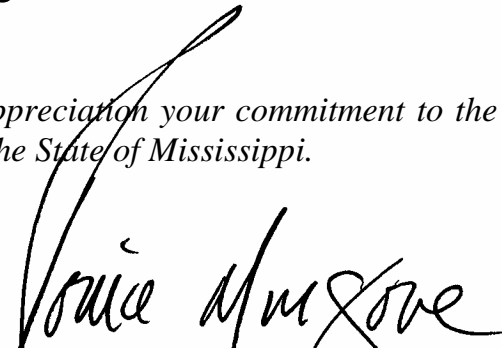 ppreciation your commitment to the
he State of Mississippi.
Ronnie Musgrove